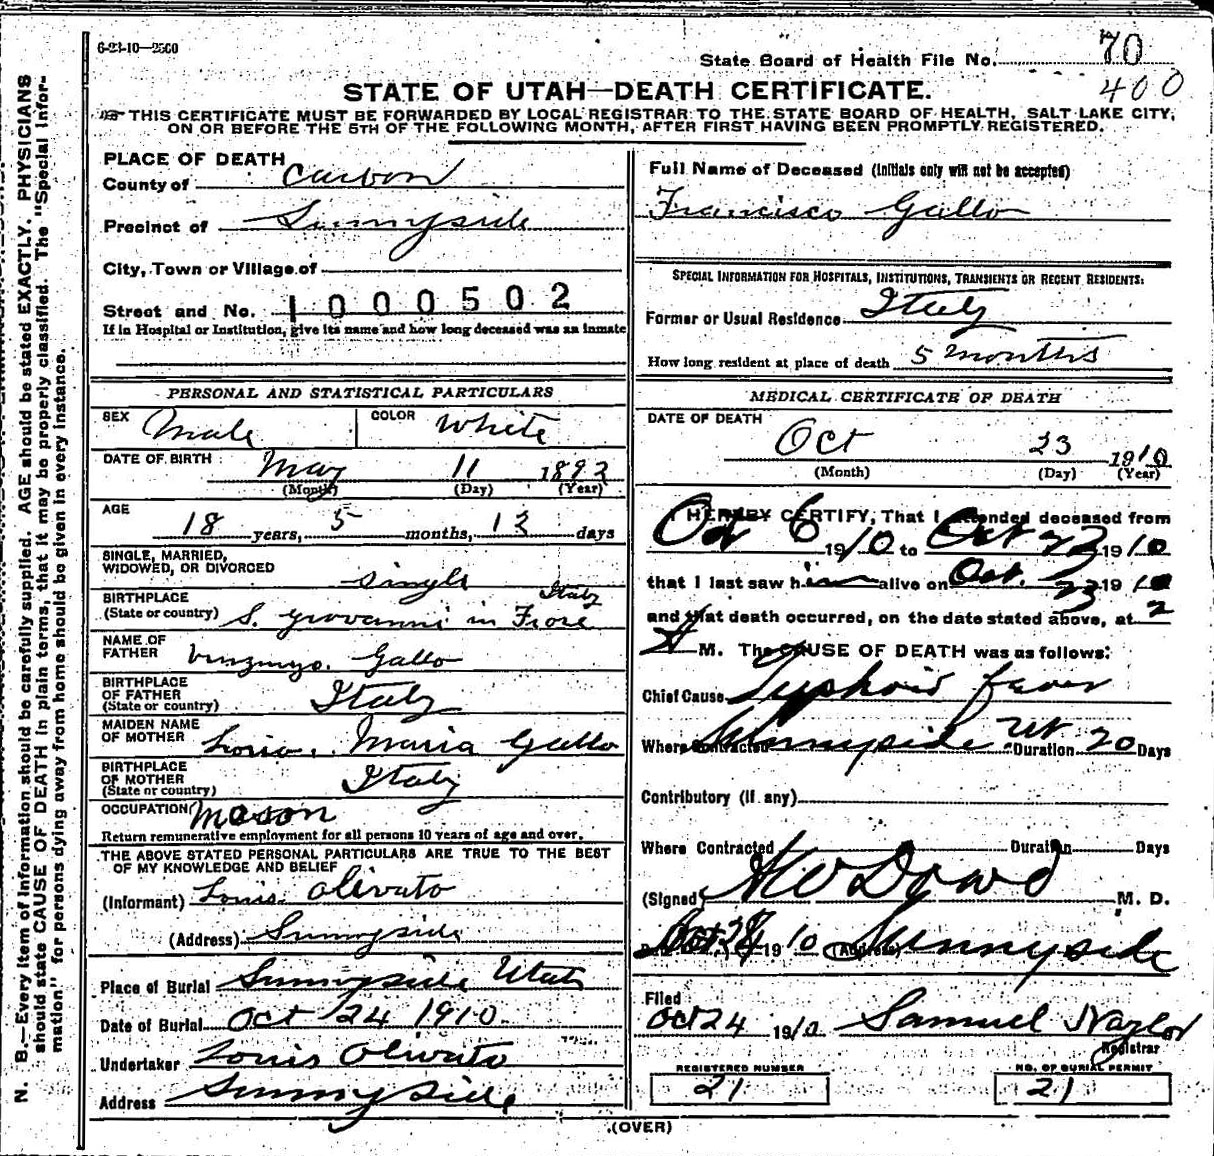 6-23-10—2500
State Board of Health File No. 70
400
STATE OF UTAH—DEATH CERTIFICATE.
THIS CERTIFICATE MUST BE FORWARDED BY LOCAL REGISTRAR TO THE STATE BOARD OF HEALTH, SALT LAKE CITY,
ON OR BEFORE THE 5TH OF THE FOLLOWING MONTH, AFTER FIRST HAVING BEEN PROMPTLY REGISTERED.
N. B.—Every item of information should be carefully supplied. AGE should be stated EXACTLY. PHYSICIANS
should state CAUSE OF DEATH in plain terms, that it may be properly classified. The "Special Infor-
mation" for persons dying away from home should be given in every instance.
PLACE OF DEATH
County of Carbon
Precinct of Sunnyside
City, Town or Village of
Street and No. 1000502
If in Hospital or Institution, give its name and how long deceased was an inmate
PERSONAL AND STATISTICAL PARTICULARS
SEX Male COLOR White
DATE OF BIRTH May 11 1892
(Month) (Day) (Year)
AGE 18 years, 5 months, 12 days
SINGLE, MARRIED,
WIDOWED, OR DIVORCED single
BIRTHPLACE Italy
(State or country) S. Giovanni in Fiore
NAME OF
FATHER Gallo
BIRTHPLACE
OF FATHER Italy
(State or country)
MAIDEN NAME
OF MOTHER Maria Gallo
BIRTHPLACE
OF MOTHER Italy
(State or country)
OCCUPATION Mason
Return remunerative employment for all persons 10 years of age and over.
THE ABOVE STATED PERSONAL PARTICULARS ARE TRUE TO THE BEST
OF MY KNOWLEDGE AND BELIEF
(Informant) Louis Olivato
(Address) Sunnyside
Place of Burial Sunnyside Utah
Date of Burial Oct 24 1910
Undertaker Louis Olivato
Address Sunnyside
Full Name of Deceased (Initials only will not be accepted)
Francisco Gallo
SPECIAL INFORMATION FOR HOSPITALS, INSTITUTIONS, TRANSIENTS OR RECENT RESIDENTS:
Former or Usual Residence Italy
How long resident at place of death 5 months
MEDICAL CERTIFICATE OF DEATH
DATE OF DEATH
Oct 23 1910
(Month) (Day) (Year)
I HEREBY CERTIFY, That I attended deceased from
Oct 6 1910 to Oct 23 1910
that I last saw him alive on Oct. 23 1910
and that death occurred, on the date stated above, at 2
A M. The CAUSE OF DEATH was as follows:
Chief Cause Typhoid fever
Where Contracted Sunnyside Ut Duration 20 Days
Contributory (if any)
Where Contracted Duration Days
(Signed) Dowd M. D.
Oct 1910 (Address) Sunnyside
Filed
Oct 24 1910 Samuel Naylor
Registrar
REGISTERED NUMBER
21
NO. OF BURIAL PERMIT
21
(OVER)